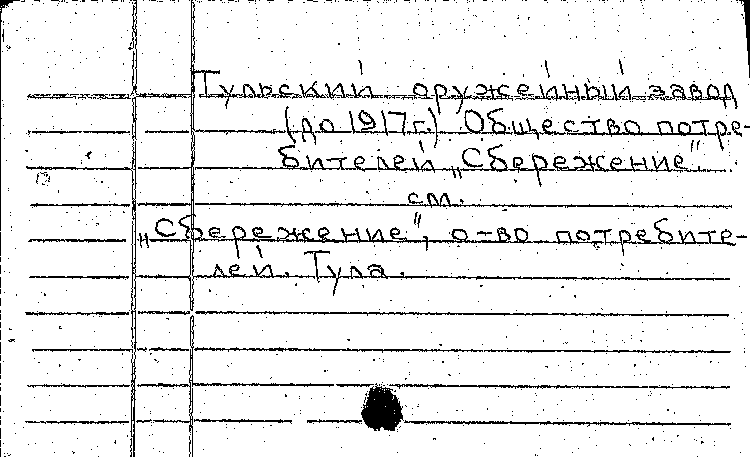 Тульский оружейный завод
(до 1917г.) Общество потре-
бителей „Сбережение".
см.
„Сбережение", о-во потребите-
лей. Тула.